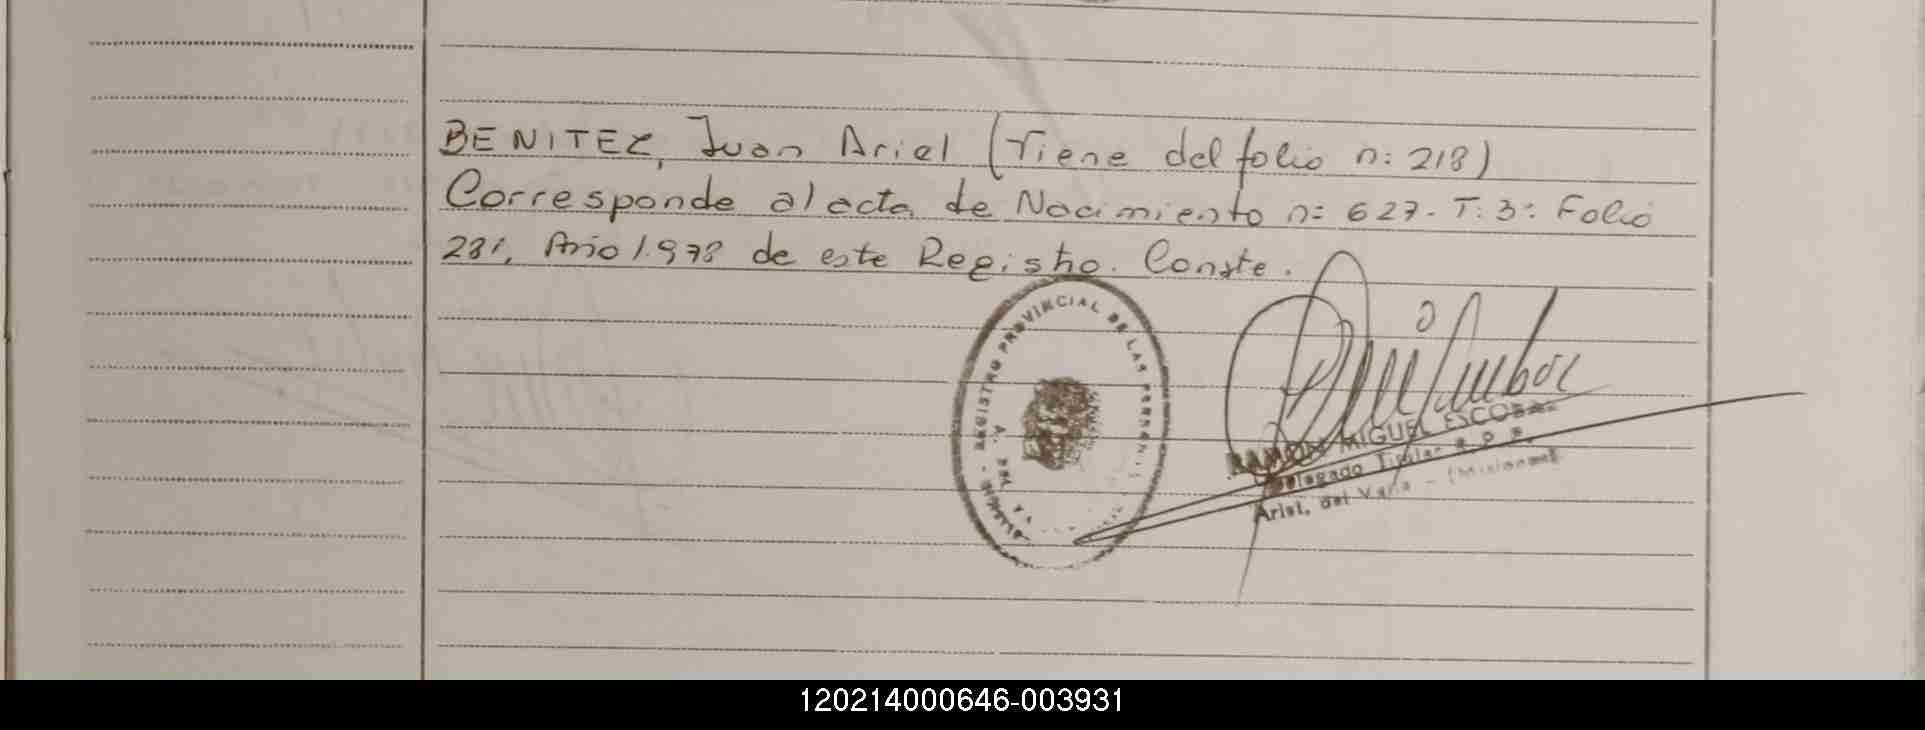 BENITEZ, Juan Ariel (Viene del folio n: 218)
Corresponde al acta de Nacimiento n: 627. T: 3: Folio
231, Año 1.978 de este Registro. Conste.
REGISTRO PROVINCIAL DE LAS PERSONAS
RAMON MIGUEL ESCOBAR
Delegado Titular R. P. P.
Arist. del Valle - (Misiones)
120214000646-003931